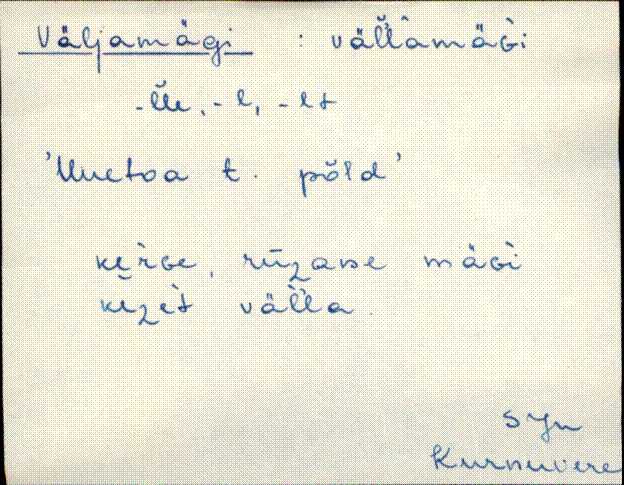 Väljamägi : väl̆l̀amäɢi
-l̆le, -l, -lt
'Uuetoa t. põld'
kerge, rūzanse mäɢi
kezèt väl̀la
SJn
Kurnuvere